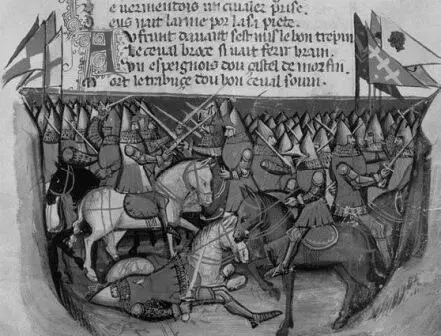 E vermentois un cualer prise.
eus nait larme por lasi piete.
Au frunt dauant sest mis le bon trepin
Le ceual broce si uait ferir brain.
Vn espeignois dou gistel de morfin.
Mort le trabuce dou bon ceual sourin.